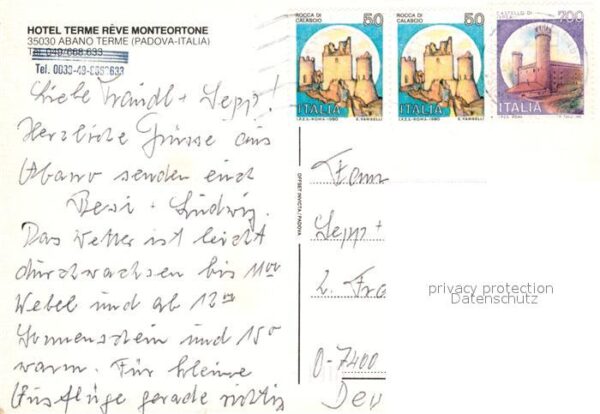 HOTEL TERME RÊVE MONTEORTONE
35030 ABANO TERME (PADOVA-ITALIA)
Tel. 049/668.633
Tel. 0039-49-8668633
ROCCA DI CALASCIO
50
ITALIA
I.P.Z.S.-ROMA-1980
ROCCA DI CALASCIO
50
ITALIA
I.P.Z.S.-ROMA-1980
CASTELLO DI
700
ITALIA
Liebe Traudl + Sepp!
Herzliche Grüsse aus
Abano senden euch
Resi + Ludwig.
Das Wetter ist leicht
durchwachsen bis 11 00
Nebel und ab 12 00
Sonnenschein und 15°
warm. Für kleine
Ausflüge gerade richtig
OFFSET INVICTA/PADOVA
Fam
Sepp +
2. Fra
D-7400
Deu
privacy protection
Datenschutz